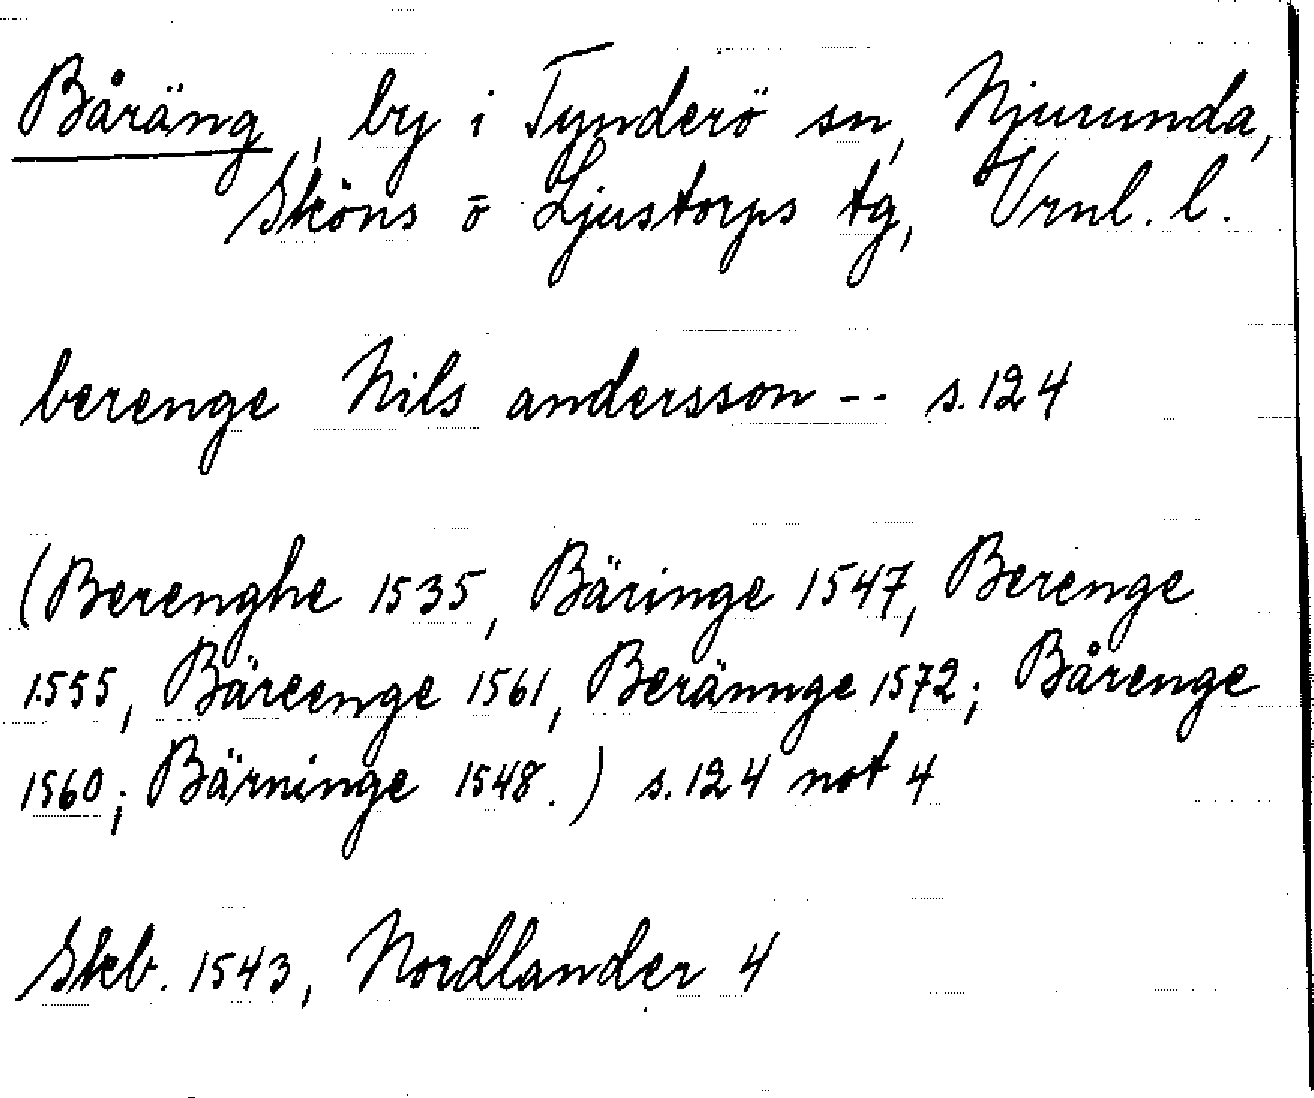 Båräng, by i Tynderö sn, Njurunda,
Sköns o Ljustorps tg, Vrnl. l.
berenge Nils andersson -- s. 124
(Berenghe 1535, Bäringe 1547, Berenge
1555, Bäreenge 1561, Berännge 1572; Bårenge
1560; Bärninge 1548.) s. 124 not 4
Skb. 1543, Nordlander 4